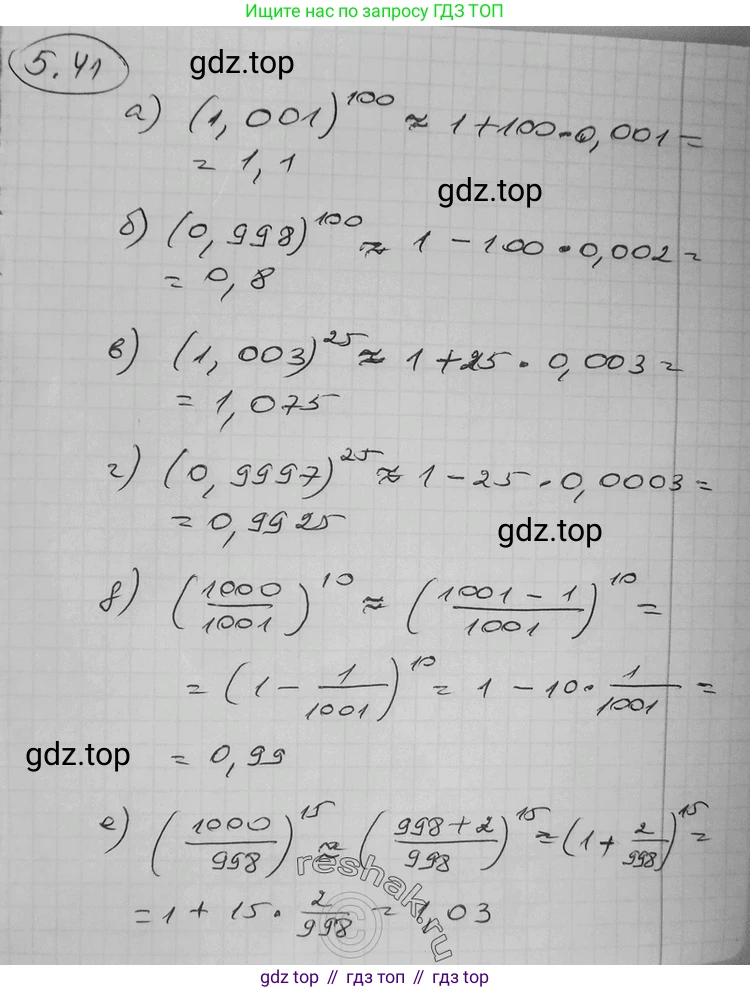 Ищите нас по запросу ГДЗ ТОП
5.41
gdz.top
а) (1,001)^100 ≈ 1+100·0,001=
= 1,1
gdz.top
б) (0,998)^100 ≈ 1 - 100·0,002=
= 0,8
в) (1,003)^25 ≈ 1+25·0,003=
= 1,075
г) (0,9997)^25 ≈ 1-25·0,0003=
= 0,9925
gdz.top
д) (1000/1001)^10 ≈ ((1001-1)/1001)^10 =
= (1 - 1/1001)^10 = 1 - 10·1/1001 =
gdz.top
= 0,99
е) (1000/998)^15 ≈ ((998+2)/998)^15 = (1+2/998)^15 =
reshak.ru
= 1 + 15·2/998 = 1,03
gdz top // гдз топ // gdz top